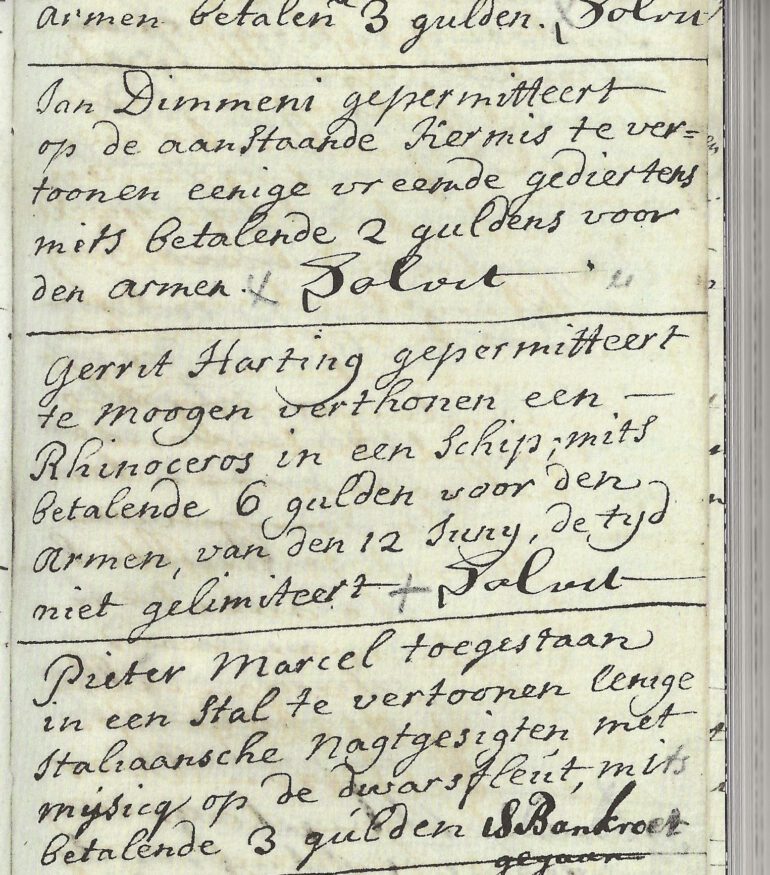 armen betalende 3 gulden. Solvit
Jan Dimmeni gepermitteert
op de aanstaande Kermis te ver=
toonen eenige vreemde gediertens
mits betalende 2 guldens voor
den armen. + Solvit
Gerrit Harting gepermitteert
te moogen verthonen een —
Rhinoceros in een Schip, mits
betalende 6 gulden voor den
armen, van den 12 Juny, de tyd
niet gelimiteert + Solvit
Pieter Marcel toegestaan
in een Stal te vertoonen eenige
Italiaansche Nagtgesigten met
mysicq op de dwarsfleut, mits
betalende 3 gulden is Bankroet
gegaan